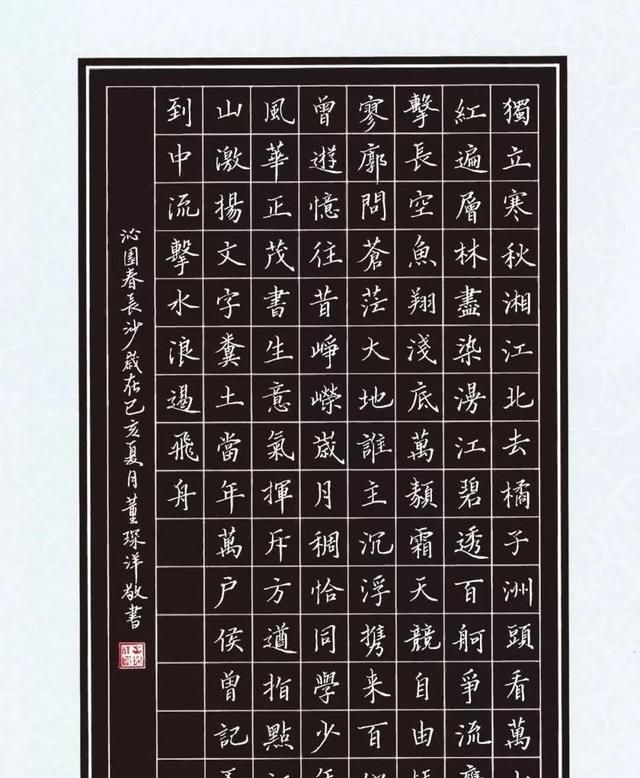 獨立寒秋湘江北去橘子洲頭看萬
紅遍層林盡染漫江碧透百舸爭流
擊長空魚翔淺底萬類霜天競自由
寥廓問蒼茫大地誰主沉浮携來百
曾遊憶往昔崢嶸歲月稠恰同學少
風華正茂書生意氣揮斥方遒指點
山激揚文字糞土當年萬户侯曾記
到中流擊水浪遏飛舟
沁園春長沙歲在己亥夏月董琛洋敬書